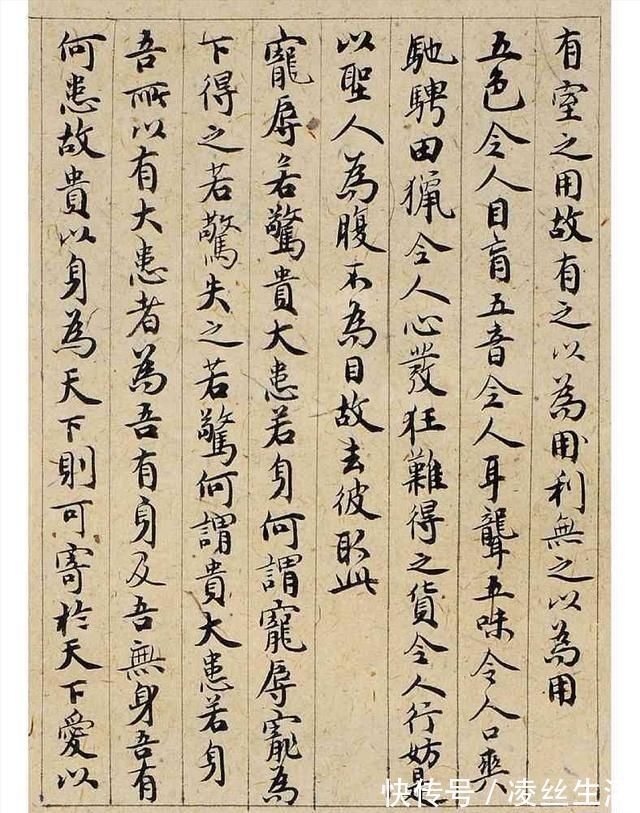 有室之用故有之以為用利無之以為用
五色令人目盲五音令人耳聾五味令人口爽
馳騁田獵令人心發狂難得之貨令人行妨是
以聖人為腹不為目故去彼取此
寵辱若驚貴大患若身何謂寵辱寵為
下得之若驚失之若驚何謂貴大患若身
吾所以有大患者為吾有身及吾無身吾有
何患故貴以身為天下則可寄於天下愛以
快传号/凌丝生活